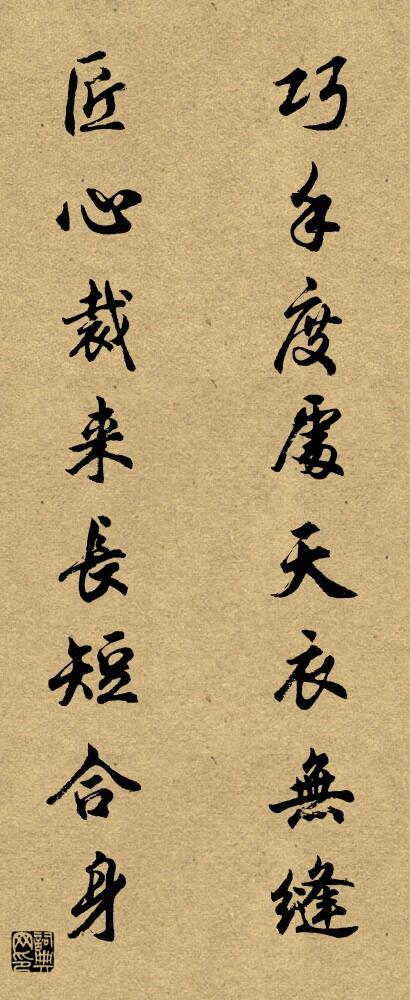 巧手度處天衣無縫
匠心裁来長短合身
詞典网印